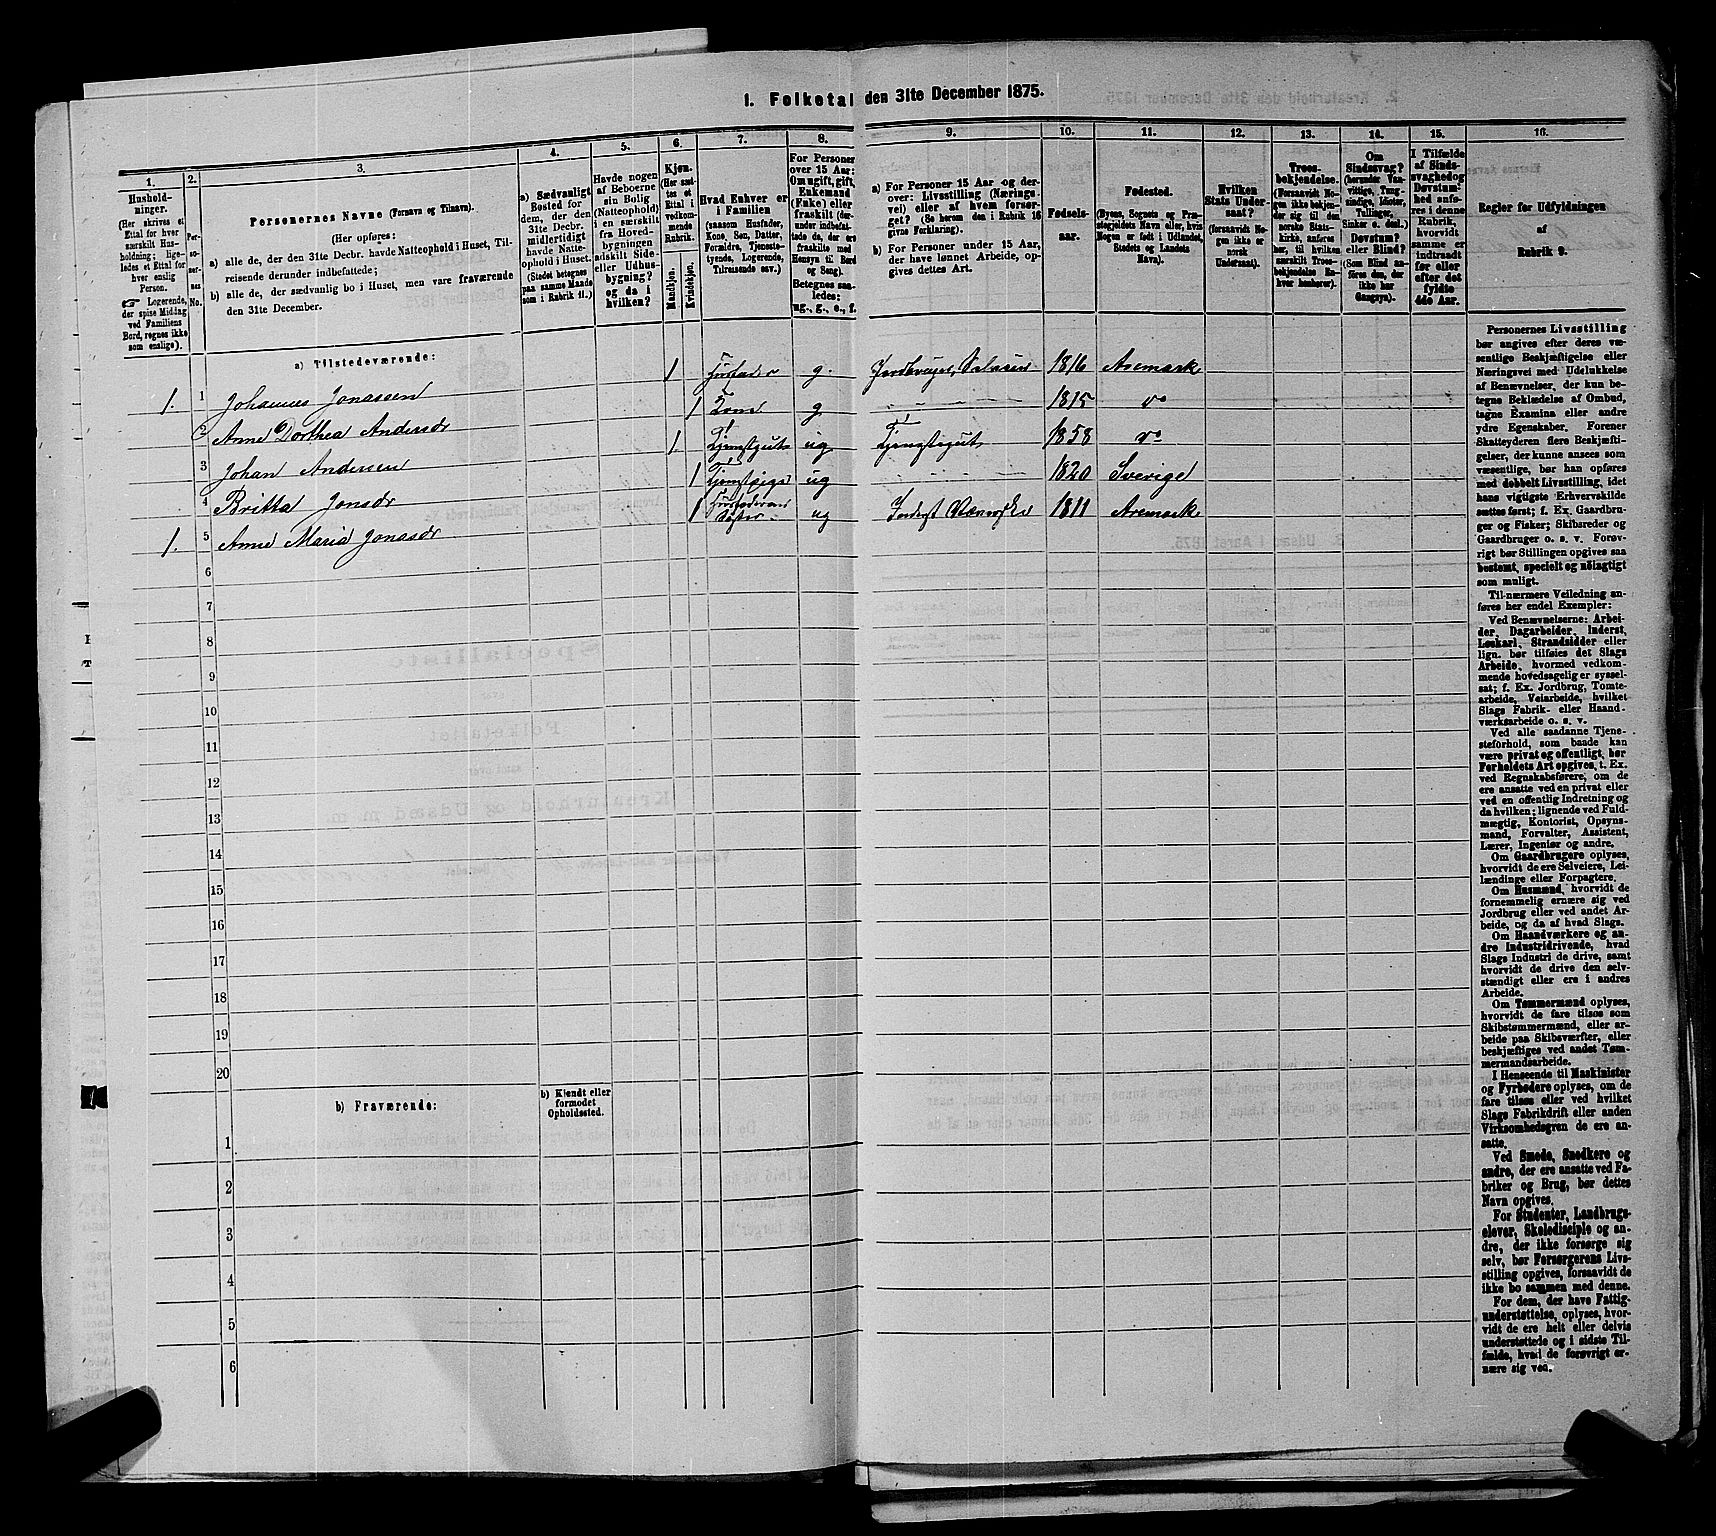 1. Folketal den 31te December 1875.
1.
Hushold-
ninger.
(Her skrives et
Ettal for hver
særskilt Hus-
holdning; lige-
ledes et Ettal for
hver enslig
Person.
☞ Logerende,
der spise Middag
ved Familiens
Bord, regnes ikke
som enslige).
2.
Per-
so-
ner-
nes
No.
3.
Personernes Navne (Fornavn og Tilnavn).
(Her opføres:
a) alle de, der den 31te Decbr. havde Natteophold i Huset, Til-
reisende derunder indbefattede;
b) alle de, der sædvanlig bo i Huset, men vare fraværende
den 31te December.
4.
a) Sædvanligt
Bosted for
dem, der den
31te Decbr.
midlertidigt
havde Natte-
ophold i Huset.
(Stedet betegnes
paa samme Maade
som i Rubrik 11.)
5.
Havde nogen
af Beboerne
sin Bolig
(Natteophold)
i en særskilt
fra Hoved-
bygningen
adskilt Side-
eller Udhus-
bygning?
og da i
hvilken?
6.
Kjøn.
(Her sæt-
tes et
Ettal i
vedkom-
mende
Rubrik.
Mandkjøn.
Kvindekjøn.
7.
Hvad Enhver er
i Familien
(saasom Husfader,
Kone, Søn, Datter,
Forældre, Tjeneste-
tyende, Logerende,
Tilreisende osv.)
8.
For Personer
over 15 Aar:
Om ugift, gift,
Enkemand
(Enke) eller
fraskilt (der-
under indbefat-
tede de, der ere
fraskilte med
Hensyn til Bord
og Seng).
Betegnes saa-
ledes:
ug., g., e., f.
9.
a) For Personer 15 Aar og der-
over: Livsstilling (Nærings-
vei) eller af hvem forsør-
get? (Se herom den i Rubrik 16
givne Forklaring).
b) For Personer under 15 Aar,
der have lønnet Arbeide, op-
gives dettes Art.
10.
Fødsels-
aar.
11.
Fødested.
(Byens, Sognets og Præ-
stegjeldets Navn eller, hvis
Nogen er født i Udlandet,
Stedets og Landets
Navn).
12.
Hvilken
Stats Under-
saat?
(forsaavidt No-
gen ikke er
norsk
Undersaat).
13.
Troes-
bekjendelse.
(Forsaavidt No-
gen ikke bekjen-
der sig til den
norske Stats-
kirke, anføres
her, til hvilken
særskilt Troes-
bekjendelse En-
hver henhører).
14.
Om
Sindssvag?
(herunder Van-
vittige, Tung-
sindige, Idioter,
Tullinger,
Sinker o. desl.)
Døvstum?
eller Blind?
(Som Blind an-
føres den, der
ikke har
Gangsyn).
15.
I Tilfælde
af Sinds-
svaghed og
Døvstum-
hed anfø-
res i denne
Rubrik,
hvorvidt
samme er
indtraadt
før eller
efter det
fyldte
4de Aar.
16.
Regler for Udfyldningen
af
Rubrik 9.
a) Tilstedeværende:
1. 1 Johannes Jonassen 1 Husfader g. Jordbruger, Selveier 1816 Aremark
2 Anne Dorthea Andersdr 1 Kone g 1815 do
3 Johan Andersen 1 Tjenstgut ug Tjenstegut 1858 do
4 Britta Jonsdr 1 Tjenstpige ug 1820 Sverige
1. 5 Anne Maria Jonasdr 1 Husfaderens Søster ug Inderst 1811 Aremark
6
7
8
9
10
11
12
13
14
15
16
17
18
19
20
b) Fraværende:
b) Kjendt eller
formodet
Opholdssted.
1
2
3
4
5
6
Personernes Livsstilling
bør angives efter deres væ-
sentlige Beskjæftigelse eller
Næringsvei med Udelukkelse
af Benævnelser, der kun be-
tegne Beklædelse af Ombud,
tagne Examina eller andre
ydre Egenskaber. Forener
Skatteyderen flere Beskjæfti-
gelser, der kunne ansees som
væsentlige, bør han opføres
med dobbelt Livsstilling, idet
hans vigtigste Erhvervskilde
sættes først; f. Ex. Gaardbru-
ger og Fisker; Skibsreder og
Gaardbruger o. s. v. Forøv-
rigt bør Stillingen opgives saa
bestemt, specielt og nøiagtigt
som muligt.
Til nærmere Veiledning an-
føres her endel Exempler:
Ved Benævnelserne: Arbei-
der, Dagarbeider, Inderst,
Løskarl, Strandsidder eller
lign. bør tilføies det Slags
Arbeide, hvormed vedkom-
mende hovedsagelig er syssel-
sat; f. Ex. Jordbrug, Tomte-
arbeide, Veiarbeide, hvilket
Slags Fabrik- eller Haand-
værksarbeide o. s. v.
Ved alle saadanne Tjene-
steforhold, som baade kan
være privat og offentligt, bør
Forholdets Art opgives, f. Ex.
ved Regnskabsførere, om de
ere ansatte ved en privat eller
ved en offentlig Indretning og
da hvilken; lignende ved Fuld-
mægtig, Kontorist, Opsyns-
mand, Forvalter, Assistent,
Lærer, Ingeniør og andre.
Om Gaardbrugere oplyses,
hvorvidt de ere Selveiere, Lei-
lændinge eller Forpagtere.
Om Husmænd, hvorvidt de
fornemmelig ernære sig ved
Jordbrug eller ved andet Ar-
beide, og da af hvad Slags.
Om Haandværkere og an-
dre Industridrivende, hvad
Slags Industri de drive, samt
hvorvidt de drive den selv-
stændigt eller ere i andres
Arbeide.
Om Tømmermænd oplyses,
hvorvidt de fare tilsøs som
Skibstømmermænd, eller ar-
beide paa Skibsværfter, eller
beskjæftiges ved andet Tøm-
mermandsarbeide.
I Henseende til Maskinister
og Fyrbødere oplyses, om de
fare tilsøs eller ved hvilket
Slags Fabrikdrift eller anden
Virksomhedsgren de ere an-
satte.
Ved Smede, Snedkere og
andre, der ere ansatte ved Fa-
briker og Brug, bør dettes
Navn opgives.
For Studenter, Landbrugs-
elever, Skoledisciple og an-
dre, der ikke forsørge sig
selv, bør Forsørgerens Livs-
stilling opgives, forsaavidt de
ikke bo sammen med denne.
For dem, der have Fattig-
understøttelse, oplyses, hvor-
vidt de ere helt eller delvis
understøttede og i sidste Til-
fælde, hvad de forøvrigt er-
nære sig ved.